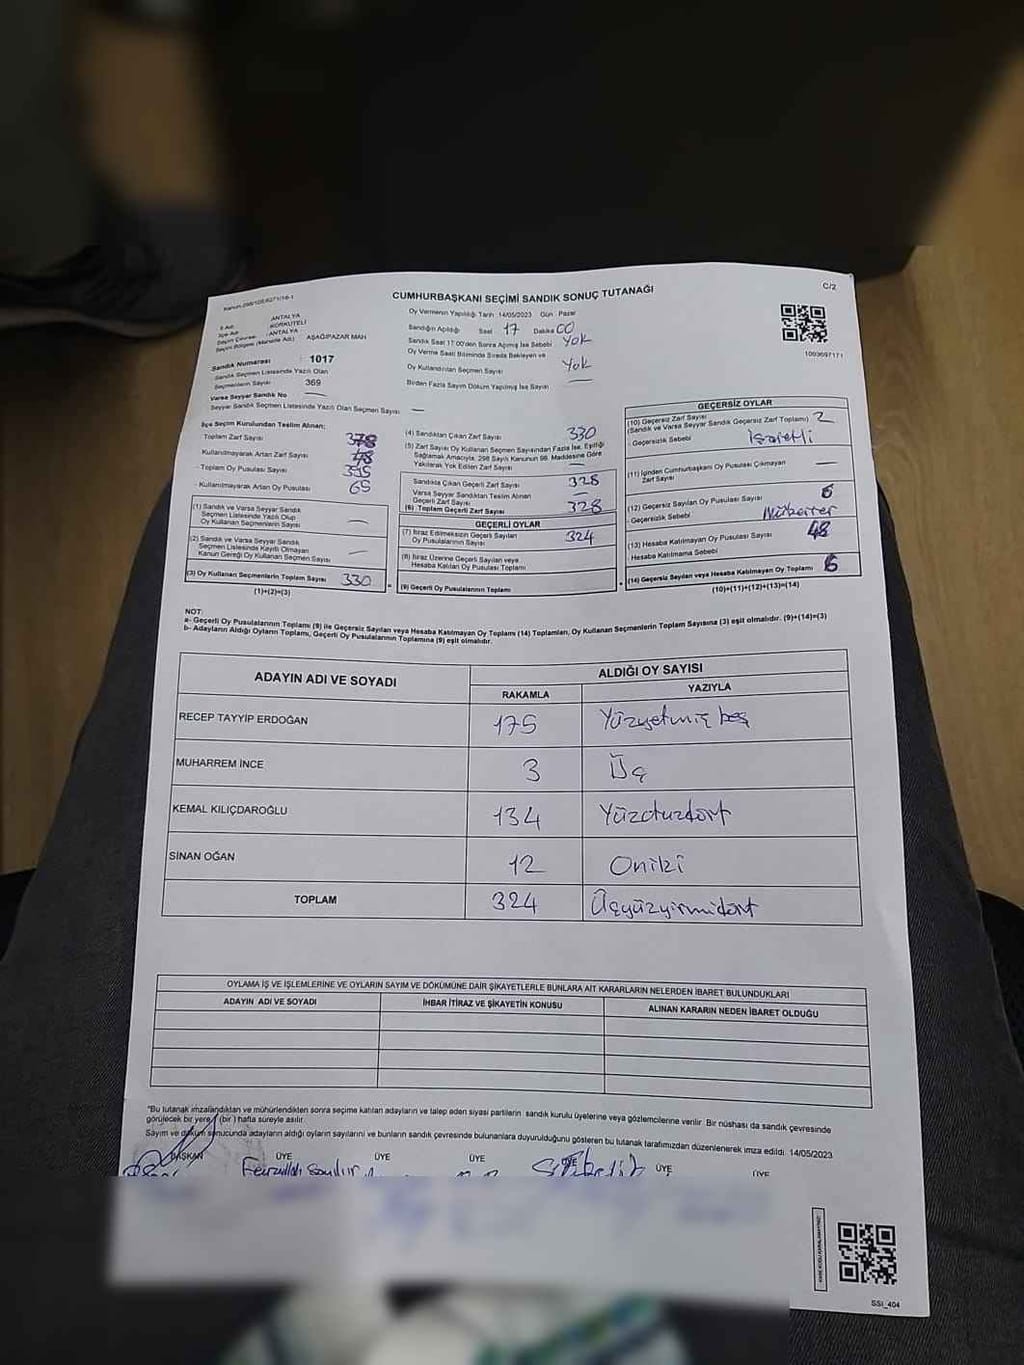 Kanun:298/105,6271/16-1
CUMHURBAŞKANI SEÇİMİ SANDIK SONUÇ TUTANAĞI
C/2
İl Adı : ANTALYA
İlçe Adı : KORKUTELİ
Seçim Çevresi : ANTALYA
Seçim Bölgesi (Mahalle Adı) : AŞAĞIPAZAR MAH
Sandık Numarası 1017
Sandık Seçmen Listesinde Yazılı Olan
Seçmenlerin Sayısı 369
Varsa Seyyar Sandık No —
Seyyar Sandık Seçmen Listesinde Yazılı Olan Seçmen Sayısı —
Oy Vermenin Yapıldığı Tarih :14/05/2023 Gün : Pazar
Sandığın Açıldığı Saat 17 Dakika 00
Sandık Saat 17:00'den Sonra Açılmış İse Sebebi Yok
Oy Verme Saati Bitiminde Sırada Bekleyen ve
Oy Kullandırılan Seçmen Sayısı Yok
Birden Fazla Sayım Döküm Yapılmış İse Sayısı —
1003697171
İlçe Seçim Kurulundan Teslim Alınan;
Toplam Zarf Sayısı 378
Kullanılmayarak Artan Zarf Sayısı 48
Toplam Oy Pusulası Sayısı 395
Kullanılmayarak Artan Oy Pusulası 65
(1) Sandık ve Varsa Seyyar Sandık
Seçmen Listesinde Yazılı Olup
Oy Kullanan Seçmenlerin Sayısı —
(2) Sandık ve Varsa Seyyar Sandık
Seçmen Listesinde Kayıtlı Olmayan
Kanun Gereği Oy Kullanan Seçmen Sayısı —
(3) Oy Kullanan Seçmenlerin Toplam Sayısı 330
(1)+(2)=(3)
(4) Sandıktan Çıkan Zarf Sayısı 330
(5) Zarf Sayısı Oy Kullanan Seçmen Sayısından Fazla İse, Eşitliği
Sağlamak Amacıyla, 298 Sayılı Kanunun 98. Maddesine Göre
Yakılarak Yok Edilen Zarf Sayısı —
Sandıkta Çıkan Geçerli Zarf Sayısı 328
Varsa Seyyar Sandıktan Teslim Alınan
Geçerli Zarf Sayısı —
(6) Toplam Geçerli Zarf Sayısı 328
GEÇERLİ OYLAR
(7) İtiraz Edilmeksizin Geçerli Sayılan
Oy Pusulalarının Sayısı 324
(8) İtiraz Üzerine Geçerli Sayılan veya
Hesaba Katılan Oy Pusulası Toplamı
(9) Geçerli Oy Pusulalarının Toplamı
GEÇERSİZ OYLAR
(10) Geçersiz Zarf Sayısı
(Sandık ve Varsa Seyyar Sandık Geçersiz Zarf Toplamı) 2
Geçersizlik Sebebi İşaretli
(11) İçinden Cumhurbaşkanı Oy Pusulası Çıkmayan
Zarf Sayısı —
(12) Geçersiz Sayılan Oy Pusulası Sayısı 6
Geçersizlik Sebebi Mükerrer
(13) Hesaba Katılmayan Oy Pusulası Sayısı 48
Hesaba Katılmama Sebebi
(14) Geçersiz Sayılan veya Hesaba Katılmayan Oy Toplamı 6
(10)+(11)+(12)+(13)=(14)
NOT:
a- Geçerli Oy Pusulalarının Toplamı (9) ile Geçersiz Sayılan veya Hesaba Katılmayan Oy Toplamı (14) Toplamları, Oy Kullanan Seçmenlerin Toplam Sayısına (3) eşit olmalıdır. (9)+(14)=(3)
b- Adayların Aldığı Oyların Toplamı, Geçerli Oy Pusulalarının Toplamına (9) eşit olmalıdır.
ADAYIN ADI VE SOYADI ALDIĞI OY SAYISI
RAKAMLA YAZIYLA
RECEP TAYYİP ERDOĞAN 175 Yüzyetmiş beş
MUHARREM İNCE 3 Üç
KEMAL KILIÇDAROĞLU 134 Yüzotuzdört
SİNAN OĞAN 12 Oniki
TOPLAM 324 Üçyüzyirmidört
OYLAMA İŞ VE İŞLEMLERİNE VE OYLARIN SAYIM VE DÖKÜMÜNE DAİR ŞİKAYETLERLE BUNLARA AİT KARARLARIN NELERDEN İBARET BULUNDUKLARI
ADAYIN ADI VE SOYADI İHBAR İTİRAZ VE ŞİKAYETİN KONUSU ALINAN KARARIN NEDEN İBARET OLDUĞU
"Bu tutanak imzalandıktan ve mühürlendikten sonra seçime katılan adayların ve talep eden siyasi partilerin sandık kurulu üyelerine veya gözlemcilerine verilir. Bir nüshası da sandık çevresinde
görülecek bir yere 1 (bir) hafta süreyle asılır.
Sayım ve döküm sonucunda adayların aldığı oyların sayılarını ve bunların sandık çevresinde bulunanlara duyurulduğunu gösteren bu tutanak tarafımızdan düzenlenerek imza edildi. 14/05/2023
BAŞKAN ÜYE ÜYE ÜYE ÜYE ÜYE ÜYE
SSI_404